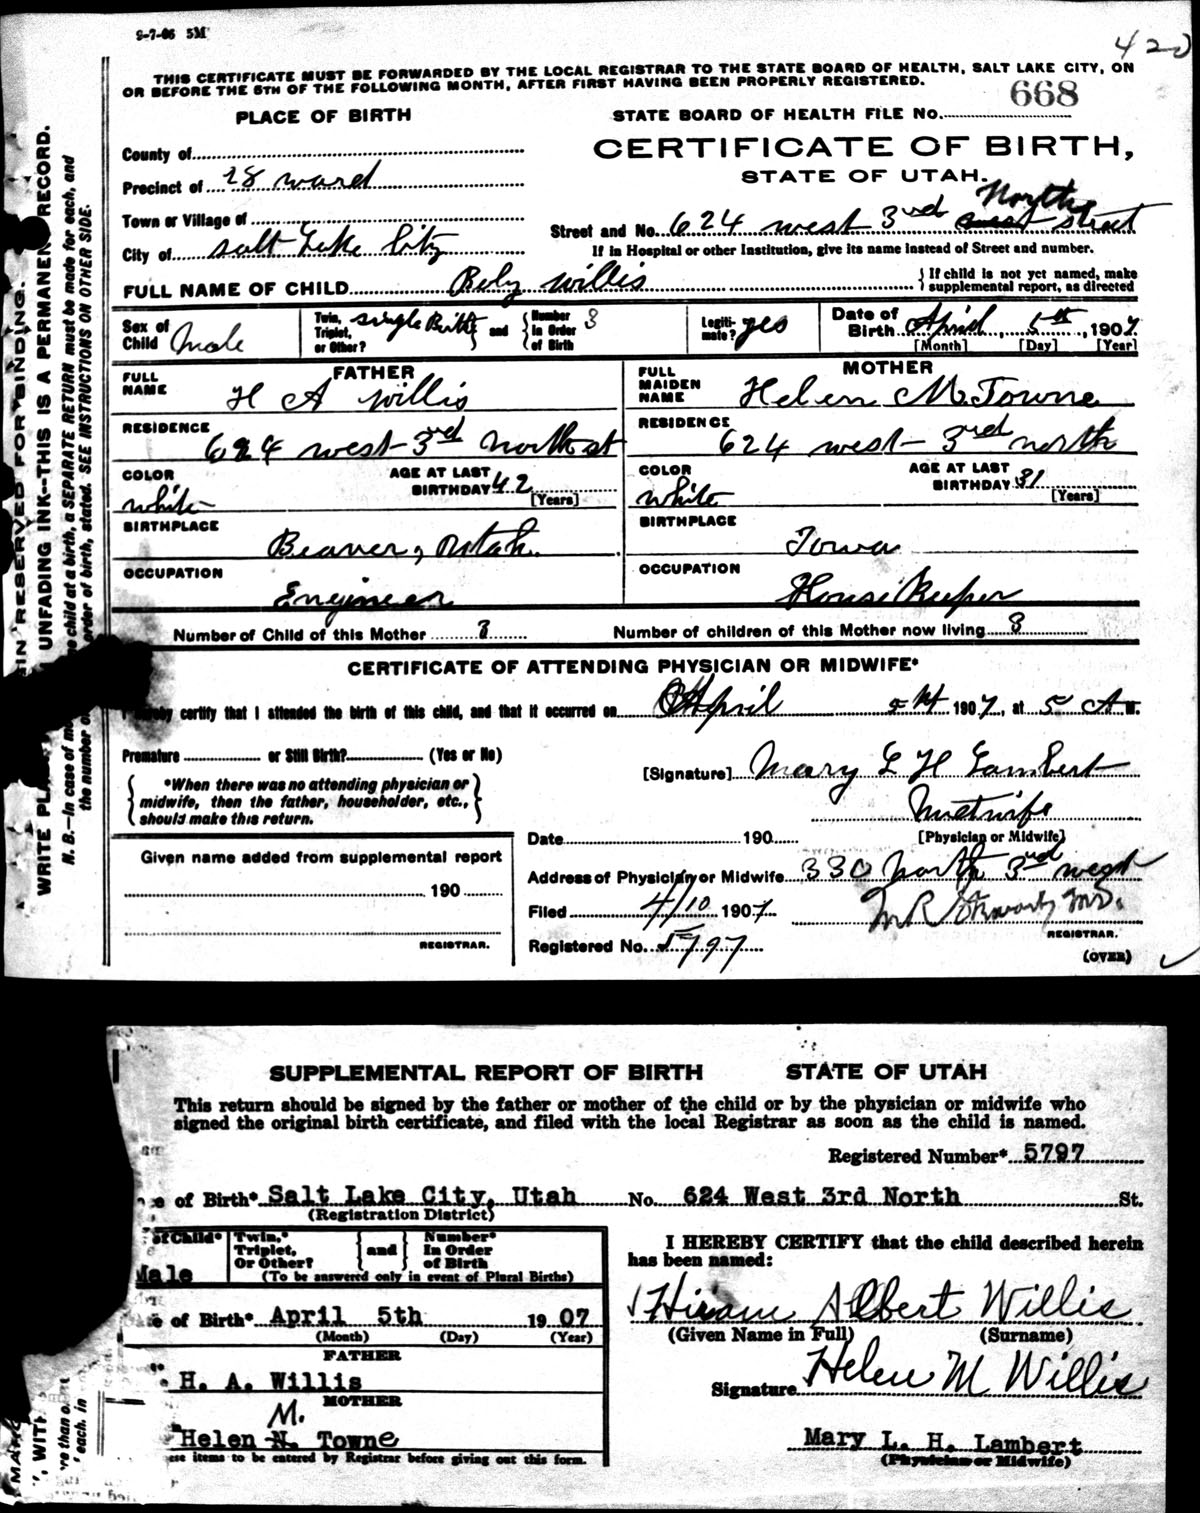 9-7-06 5M
420
THIS CERTIFICATE MUST BE FORWARDED BY THE LOCAL REGISTRAR TO THE STATE BOARD OF HEALTH, SALT LAKE CITY, ON
OR BEFORE THE 5TH OF THE FOLLOWING MONTH, AFTER FIRST HAVING BEEN PROPERLY REGISTERED.
PLACE OF BIRTH
STATE BOARD OF HEALTH FILE No. 668
CERTIFICATE OF BIRTH,
STATE OF UTAH.
County of
Precinct of 28 ward
Town or Village of
City of Salt Lake City
Street and No. 624 west 3rd North street
If in Hospital or other Institution, give its name instead of Street and number.
FULL NAME OF CHILD Willis
If child is not yet named, make supplemental report, as directed
Sex of Child Male
Twin, Triplet, or Other? single Birth and Number in Order of Birth 3
Legitimate? yes
Date of Birth April 5th, 1907
[Month] [Day] [Year]
FATHER
FULL NAME H A Willis
RESIDENCE 624 west 3rd North st
COLOR white
AGE AT LAST BIRTHDAY 42 [Years]
BIRTHPLACE Beaver, Utah
OCCUPATION Engineer
MOTHER
FULL MAIDEN NAME Helen M. Towne
RESIDENCE 624 west 3rd north
COLOR white
AGE AT LAST BIRTHDAY 31 [Years]
BIRTHPLACE Iowa
OCCUPATION House Keeper
Number of Child of this Mother 3 Number of children of this Mother now living 3
CERTIFICATE OF ATTENDING PHYSICIAN OR MIDWIFE*
hereby certify that I attended the birth of this child, and that it occurred on April 1907, at 5 A M.
Premature or Still Birth? (Yes or No)
*When there was no attending physician or midwife, then the father, householder, etc., should make this return.
[Signature] Mary L H Lambert
Metwife
[Physician or Midwife]
Date 190
Given name added from supplemental report
190
REGISTRAR.
Address of Physician or Midwife 330 North 3rd west
Filed 4/10 1907
M.D.
REGISTRAR.
Registered No. 5797
(OVER)
IN RESERVED FOR BINDING.
WRITE PLA UNFADING INK--THIS IS A PERMANENT RECORD.
N. B.--In case of more child at a birth, a SEPARATE RETURN must be made for each, and
the number order of birth, stated. SEE INSTRUCTIONS ON OTHER SIDE.
SUPPLEMENTAL REPORT OF BIRTH STATE OF UTAH
This return should be signed by the father or mother of the child or by the physician or midwife who
signed the original birth certificate, and filed with the local Registrar as soon as the child is named.
Registered Number* 5797
of Birth* Salt Lake City, Utah No. 624 West 3rd North St.
(Registration District)
of Child* Male
Twin,* Triplet, Or Other? and Number* In Order of Birth
(To be answered only in event of Plural Births)
of Birth* April 5th 1907
(Month) (Day) (Year)
FATHER
H. A. Willis
MOTHER
M.
Helen N. Towne
items to be entered by Registrar before giving out this form.
I HEREBY CERTIFY that the child described herein
has been named:
Hiram Albert Willis
(Given Name in Full) (Surname)
Signature Helen M Willis
Mary L. H. Lambert
(Physician or Midwife)